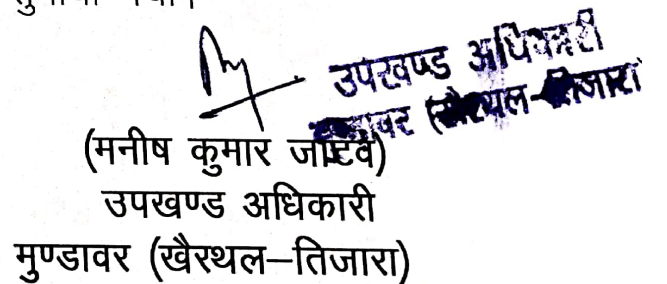 उपखण्ड अधिकारी
मुण्डावर (खैरथल-तिजारा)
(मनीष कुमार जाटव)
उपखण्ड अधिकारी
मुण्डावर (खैरथल–तिजारा)